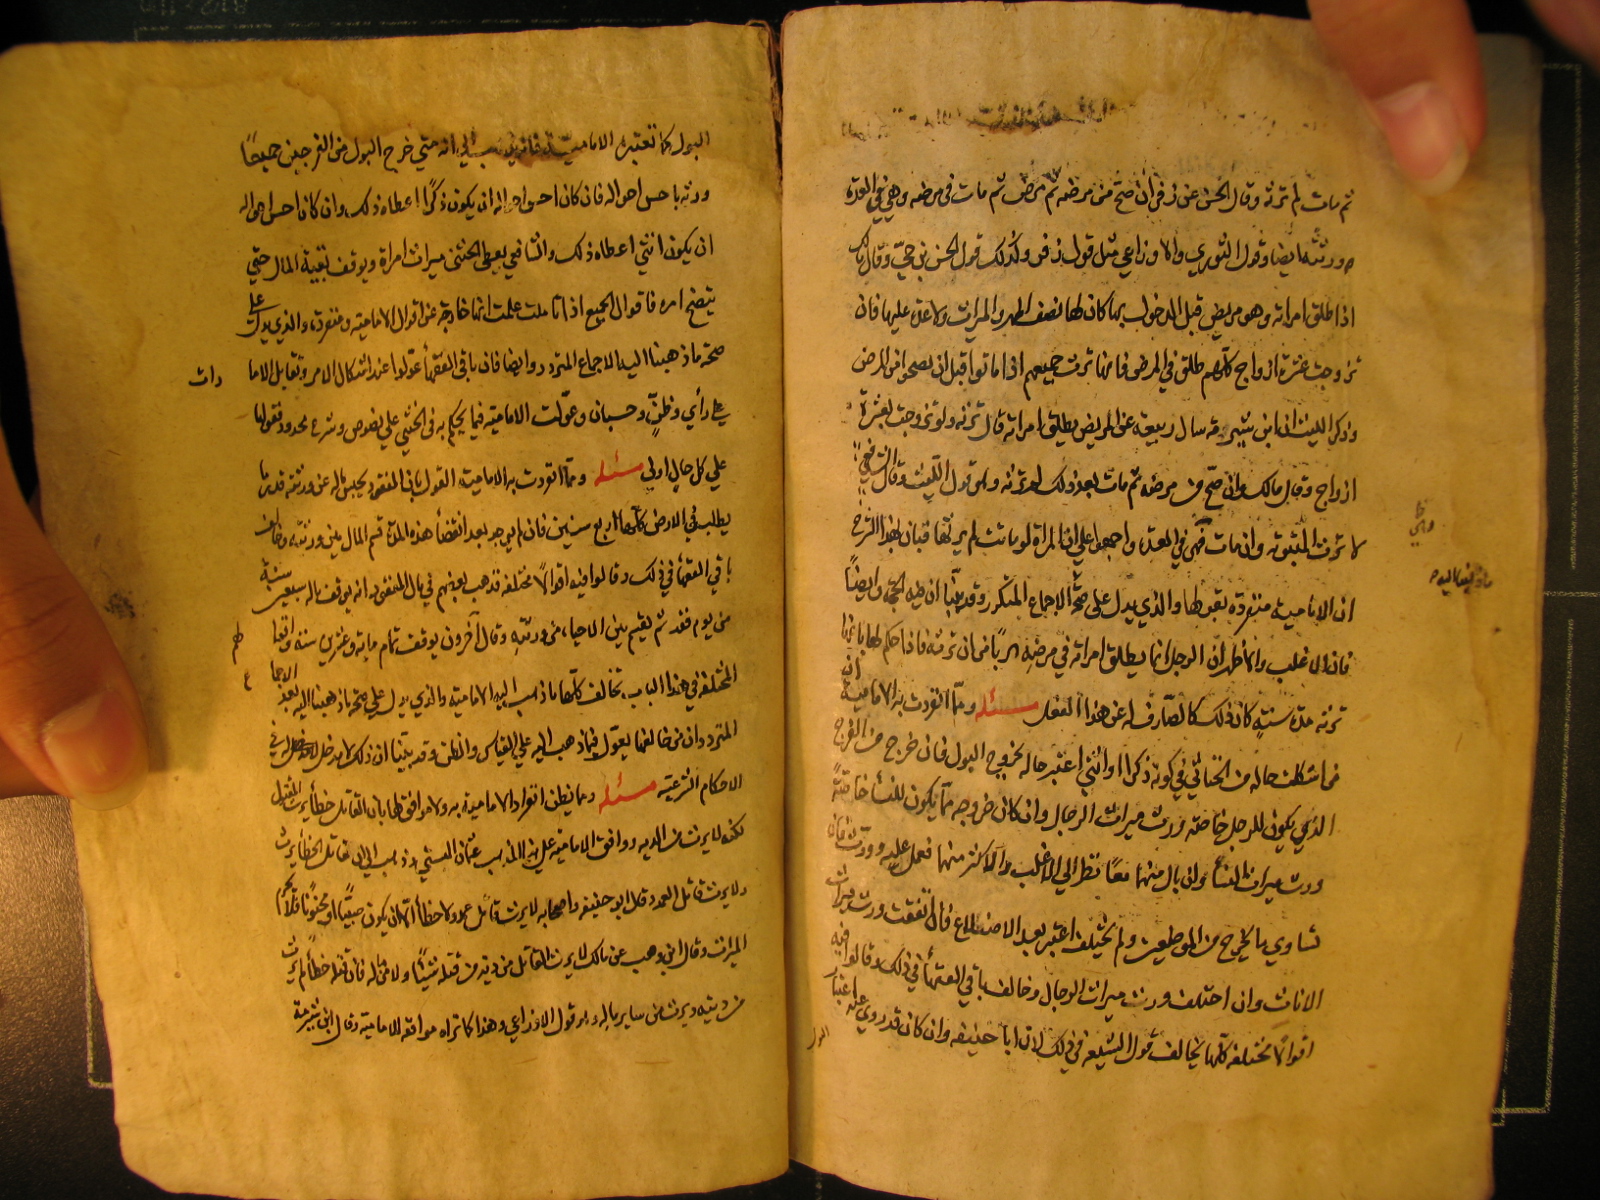 ثم مات لم ترثه وقال الحسن عن زفر ان صح من مرضه ثم مرض ثم مات في مرضه وهي في العدة
ورثته ايضا وقول الثوري والاوزاعي مثل قول زفر وكذلك قول الحسن بن حي وقال مالك
اذا طلق امراته وهو مريض قبل الدخول بها كان لها نصف المهر والميراث ولا عدة عليها فان
تزوجت عشرة ازواج كلهم طلق في المرض فانها ترث جميعهم اذا ماتوا قبل ان يصحوا من المرض
وذكر الليث ان ابن شبرمة سال ربيعة عن المريض يطلق امراته قال ترثه ولو تزوجت بعشرة
ازواج وقال مالك وان صح من مرضه ثم مات بعد ذلك لم ترثه وهو قول الليث وقال الشافعي
لا ترث المبتوتة وان مات وهي في العدة واجمعوا علي ان المراة لو ماتت لم يرثها فبان بهذا الشرح
ان الامامية منفردة بقولها والذي يدل علي صحة الاجماع المتكرر وقد بينا ان فيه الحجة وايضاً
فان الاغلب والاظهر ان الرجل انما يطلق امراته في مرضه هرباً من ان ترثه فاذا حكم لها بانها
ترثه مدة سنة كان ذلك كالصارف له عن هذا الفعل مسئله ومما انفردت به الامامية ان
من اشكلت حاله من الخناثي في كونه ذكراً او انثي اعتبر حاله بخروج البول فان خرج من الفرج
الذي يكون للرجل خاصة ورث ميراث الرجال وان كان خروجه مما يكون للنسأ خاصة
ورث ميراث النسأ وان بال منهما معاً نظر الي الاغلب والاكثر منهما فعمل عليه وورث فان
تساوي ما يخرج من الموضعين ولم يختلف اعتبر بعدد الاضلاع فان اتفقت ورث ميراث
الاناث وان اختلف ورث ميراث الرجال وخالف باقي الفقهأ في ذلك وقالوا فيه
اقوالاً مختلفة كلها يخالف قول الشيعه في ذلك لان ابا حنيفه وان كان قد روي عنه اعتبار
البول
البول كما تعتبره الامامية فانه يذهب الي انه متي خرج البول من الفرجين جميعاً
ورثه باحسن احواله فان كان احسن احواله ان يكون ذكراً اعطاه ذلك وان كان احسن احواله
ان يكون انثي اعطاه ذلك والشافعي يعطي الخنثي ميراث امراة ويوقف بقية المال حتي
يتضح امره فاقوال الجميع اذا تاملت علمت انها خارجة عن اقوال الامامية ومنفردة والذي يدل علي
صحة ما ذهبنا اليه الاجماع المتردد وايضا فان باقي الفقهأ عولوا عند اشكال الامر وتقابل الاما
رات
علي رأي وظن وحسبان وعولت الامامية فيما يحكم به في الخنثي علي نصوص وشرع محدود فقولها
علي كل حال اولي مسئله ومما انفردت به الامامية القول بان المفقود يحبس ماله عن ورثته قدر ما
يطلب في الارض كلها اربع سنين فان لم يوجد بعد انقضأ هذه المدة قسم المال بين ورثته وخالف
باقي الفقهأ في ذلك وقالوا فيه اقوالاً مختلفة فذهب بعضهم في مال المفقود انه يوقف ماله سبعين سنة
من يوم فقد ثم يقسم بين الاحياء من ورثته وقال آخرون يوقف تمام مايه وعشرين سنة واقوالهم
المختلفة في هذا الباب تخالف كلها ما ذهب اليه الامامية والذي يدل علي صحة ما ذهبنا اليه بعد الاجماع
المتردد ان من خالفنا يعول فيما ذهب اليه علي القياس والظن وقد بينا ان ذلك لا يدخل له في
الاحكام الشرعية مسئله وما يظن انفراد الامامية به ولا موافق لها بان القاتل خطأ يرث المقتول
لكنه لا يرث من الديه ووافق الامامية علي هذا المذهب عثمان البتي وذهب الي ان قاتل الخطأ يرث
ولا يرث قاتل العمد وقال ابو حنيفه واصحابه لا يرث قاتل عمد ولا خطأ الا ان يكون صبياً او مجنوناً فلا يحرم
الميراث وقال ابن وهب عن مالك لا يرث القاتل من دية من قتله شيئاً ولا من ماله فان قتله خطأ لم يرث
من ديته ويرث من ساير ماله وهو قول الاوزاعي وهذا كما تراه موافقة للامامية وقال ابن شبرمة